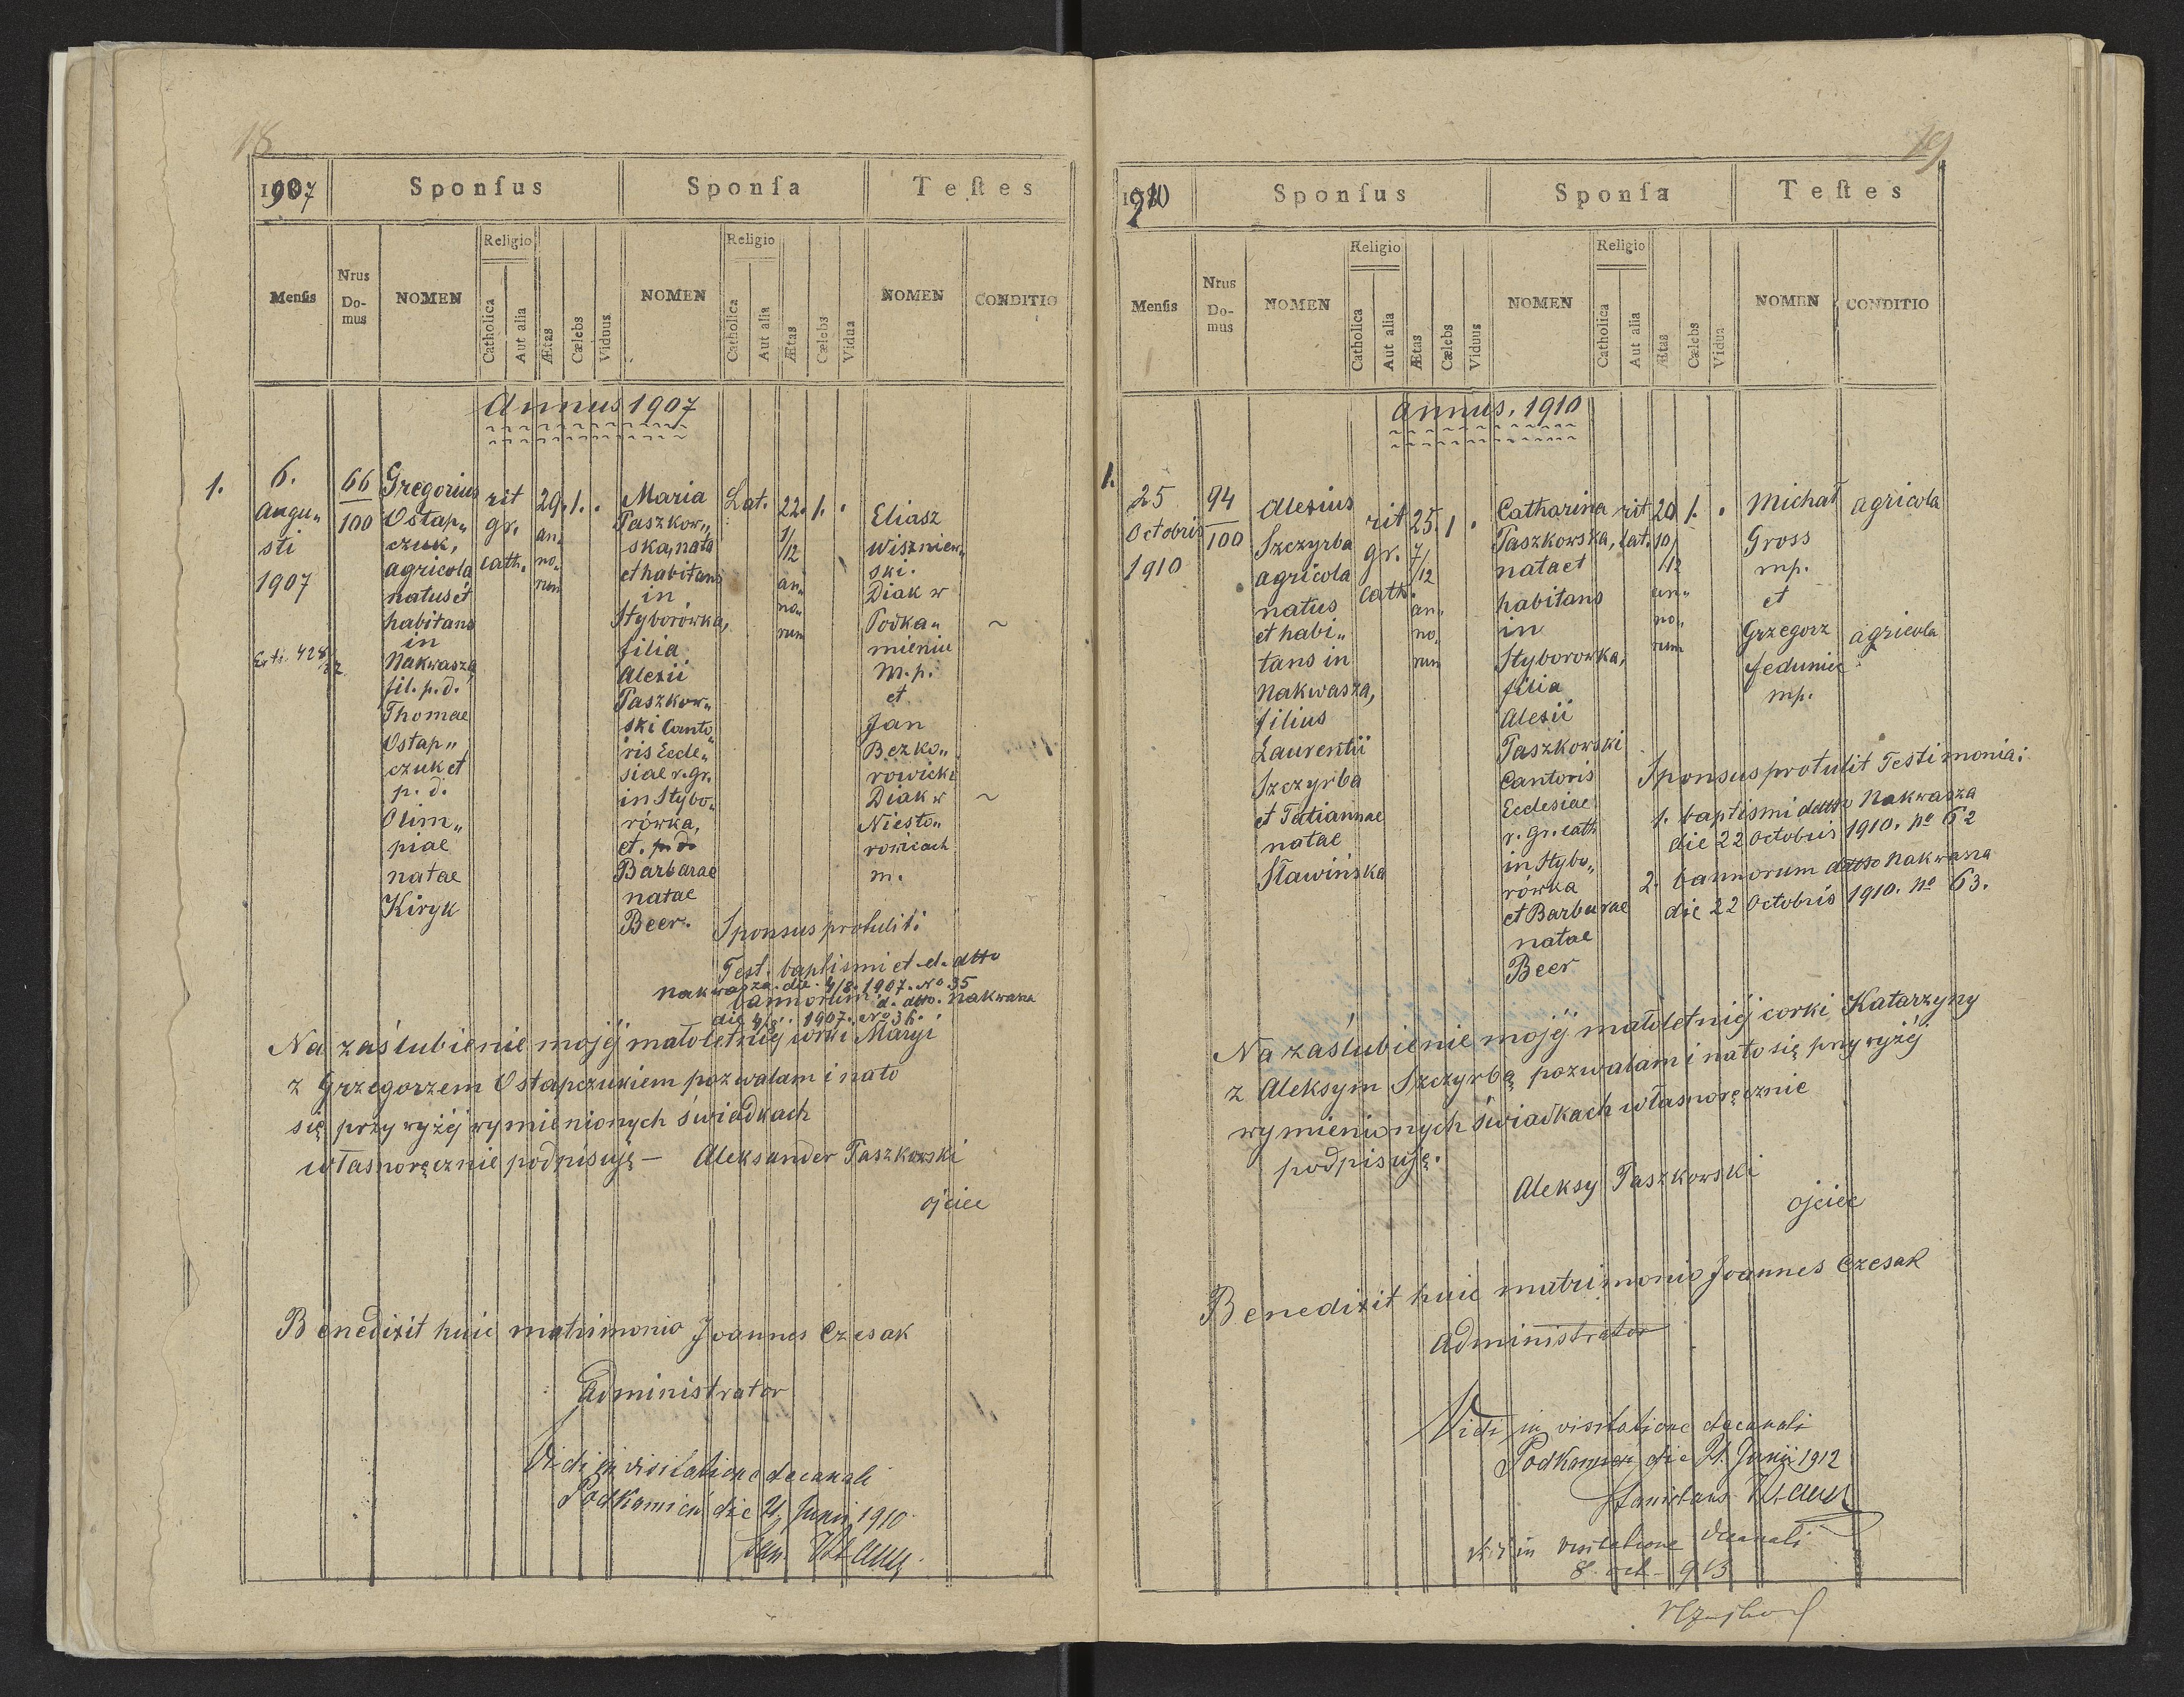 18
1907
Sponſus
Sponſa
Teſtes
Menſis
Nrus Domus
NOMEN
Religio
Catholica
Aut alia
Ætas
Cælebs
Viduus
NOMEN
Religio
Catholica
Aut alia
Ætas
Cælebs
Vidua
NOMEN
CONDITIO
Annus 1907
1.
6.
Augu„
sti
1907
66
100
Gregorius
Ostap„
czuk,
agricola
natus et
habitans
in
Nakwasza
fil. p. d.
Thomae
Ostap„
czuk et
p. d.
Olim„
piae
natae
Kiryk
rit
gr.
cath.
29.
an„
no„
rum
1.
Maria
Paszkow„
ska, nata
et habitans
in
Styborówka,
filia
Alexii
Paszkow„
ski Canto„
ris Eccle„
siae r. gr.
in Stybo„
rówka,
et
Barbarae
natae
Beer.
Lat.
22.
1/12
an„
no„
rum
1.
Eliasz
Wiszniew„
ski.
Diak w
Podka„
mieniu
m. p.
et
Jan
Bezko„
rowicki
Diak w
Niesto„
rowicach
m.
~
~
Sponsus protulit:
Test. baptismi et d. dtto
Nakwasza. die. 4/8. 1907. No 35
bannorum d. dtto. Nakwasza
die 4/8. 1907. No 36.
Na zaślubienie mojéj małoletniéj córki Maryi
z Grzegorzem Ostapczukiem pozwalam i na to
się przy wyżéj wymienionych świadkach
własnoręcznie podpisuję – Aleksander Paszkowski
ojciec
Benedixit huic matrimonio Joannes Czesak
Administrator
Vidi in visitatione decanali
Podkamień die 21 Junii 1910
19
1910
Sponſus
Sponſa
Teſtes
Menſis
Nrus Domus
NOMEN
Religio
Catholica
Aut alia
Ætas
Cælebs
Viduus
NOMEN
Religio
Catholica
Aut alia
Ætas
Cælebs
Vidua
NOMEN
CONDITIO
annus. 1910
1.
25
Octobris
1910
94
100
Alexius
Szczyrba
agricola
natus
et habi„
tans in
Nakwasza,
filius
Laurentii
Szczyrba
et Tatiannae
natae
Sławińska
rit
gr.
cath.
25.
7/12
an„
no„
rum
1
Catharina
Paszkowska,
nata et
habitans
in
Styborowka,
filia
Alexii
Paszkowski
Cantoris
Ecclesiae
r. gr. cath
in Stybo„
rówka
et Barbarae
natae
Beer
rit
lat.
20
10/12
an„
no„
rum
1.
Michał
Gross
mp.
et
Grzegorz
Feduniec
mp.
agricola
agricola
Sponsus protulit Testimonia:
1. baptismi ddtto Nakwasza
die 22 Octobris 1910. No 62
2. bannorum ddtto Nakwasza
die 22 Octobris 1910. No 63.
Na zaślubienie mojéj małoletniéj corki Katarzyny
z Aleksym Szczyrbą pozwalam i na to się przy wyżéj
wymienionych świadkach własnoręcznie
podpisuję.
Aleksy Paszkowski
ojciec
Benedixit huic matrimonio Joannes Czesak
Administrator
Vidi in visitatione decanali
Podkamień die 21. Junii 1912
Vidi in visitatione decanali
8 oct 913